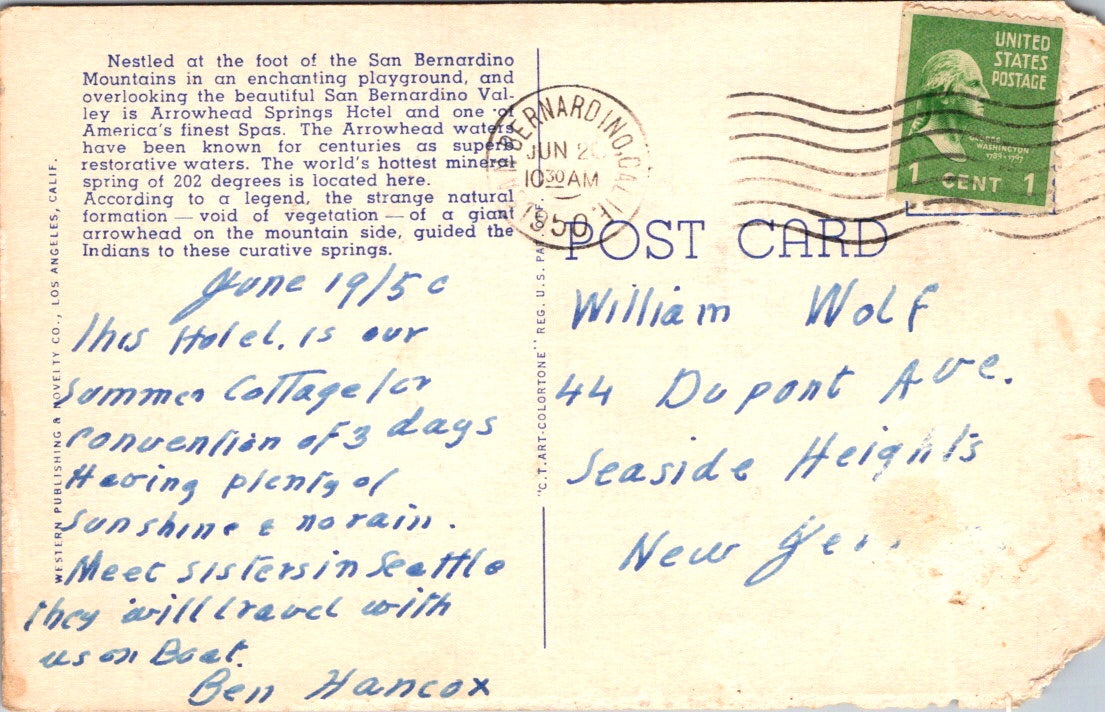 Nestled at the foot of the San Bernardino
Mountains in an enchanting playground, and
overlooking the beautiful San Bernardino Val-
ley is Arrowhead Springs Hotel and one of
America's finest Spas. The Arrowhead waters
have been known for centuries as superb
restorative waters. The world's hottest mineral
spring of 202 degrees is located here.
According to a legend, the strange natural
formation — void of vegetation — of a giant
arrowhead on the mountain side, guided the
Indians to these curative springs.
WESTERN PUBLISHING & NOVELTY CO., LOS ANGELES, CALIF.
June 19/50
This Hotel. is our
Summer Cottage for
convention of 3 days
Having plenty of
sunshine & no rain.
Meet sisters in Seattle
they will travel with
us on Boat.
Ben Hancox
BERNARDINO, CALIF.
JUN
10 30 AM
1950
UNITED
STATES
POSTAGE
WASHINGTON
1789-1797
1 CENT 1
"C.T. ART-COLORTONE" REG. U.S. PAT.
POST CARD
William Wolf
44 Dupont Ave.
Seaside Heights
New